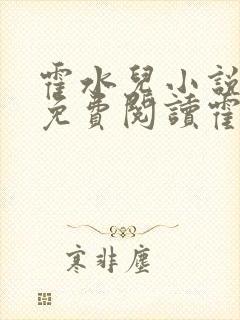 霍水兒小說
免費閱讀霍
寒非塵